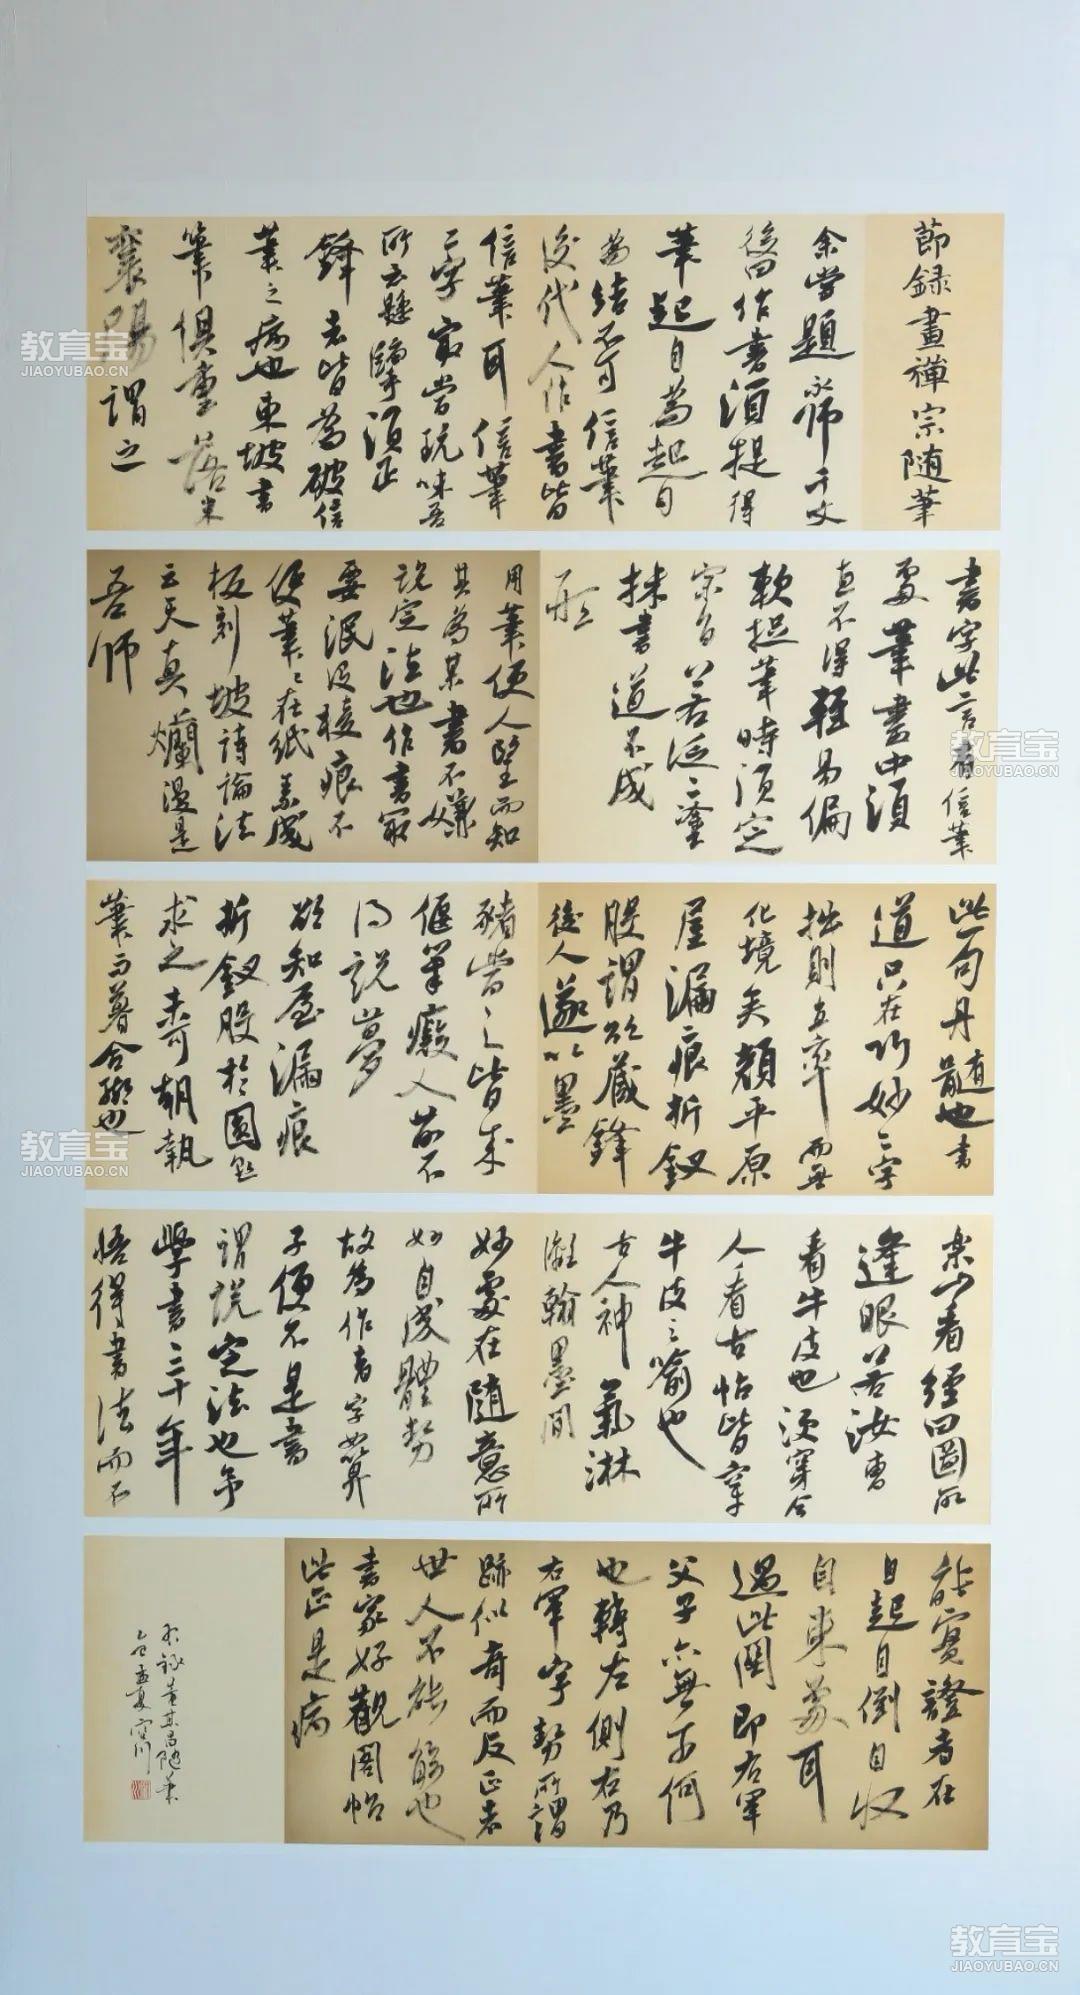 節録畫禪宗随筆
余嘗題永師千文
後曰作書須提得
筆起自為起自
為結不可信筆
後代人作書皆
信筆耳信筆
二字最當玩味吾
所云懸腕須正
鋒者皆為破信
筆之病也東坡書
筆俱重落米
襄陽謂之
畫字此言有信筆
處筆畫中須
直不得輕易偏
軟捉筆時須定
宗旨若泛泛塗
抹書道不成
形
用筆便人望而知
其為某書不嫌
說定法也作書最
要泯沒稜痕不
使筆筆在紙素成
板刻坡詩論法
云天真爛漫是
吾師
此一句丹髓也書
道只在巧妙二字
拙則直率而無
化境矣顔平原
屋漏痕折釵
股謂欲藏鋒
後人遂以墨
豬當之皆成
偃筆癡人前不
得說夢
欲知屋漏痕
折釵股於圓熟
求之未可朝執
筆而暮合轍也
藥山看經曰圖取
遮眼若汝曹
看牛皮也須穿今
人看古帖皆穿
牛皮之喻也
古人神氣淋
漓翰墨間
妙處在随意所
如自成體勢
故為作者字如算
子便不是書
謂說定法也予
學書三十年
悟得書法而不
能實證者在
自起自倒自收
自束處耳
過此關即右軍
父子亦無奈何
也轉左側右乃
右軍字勢所謂
跡似奇而反正者
世人不能解也
書家好觀閣帖
此正是病